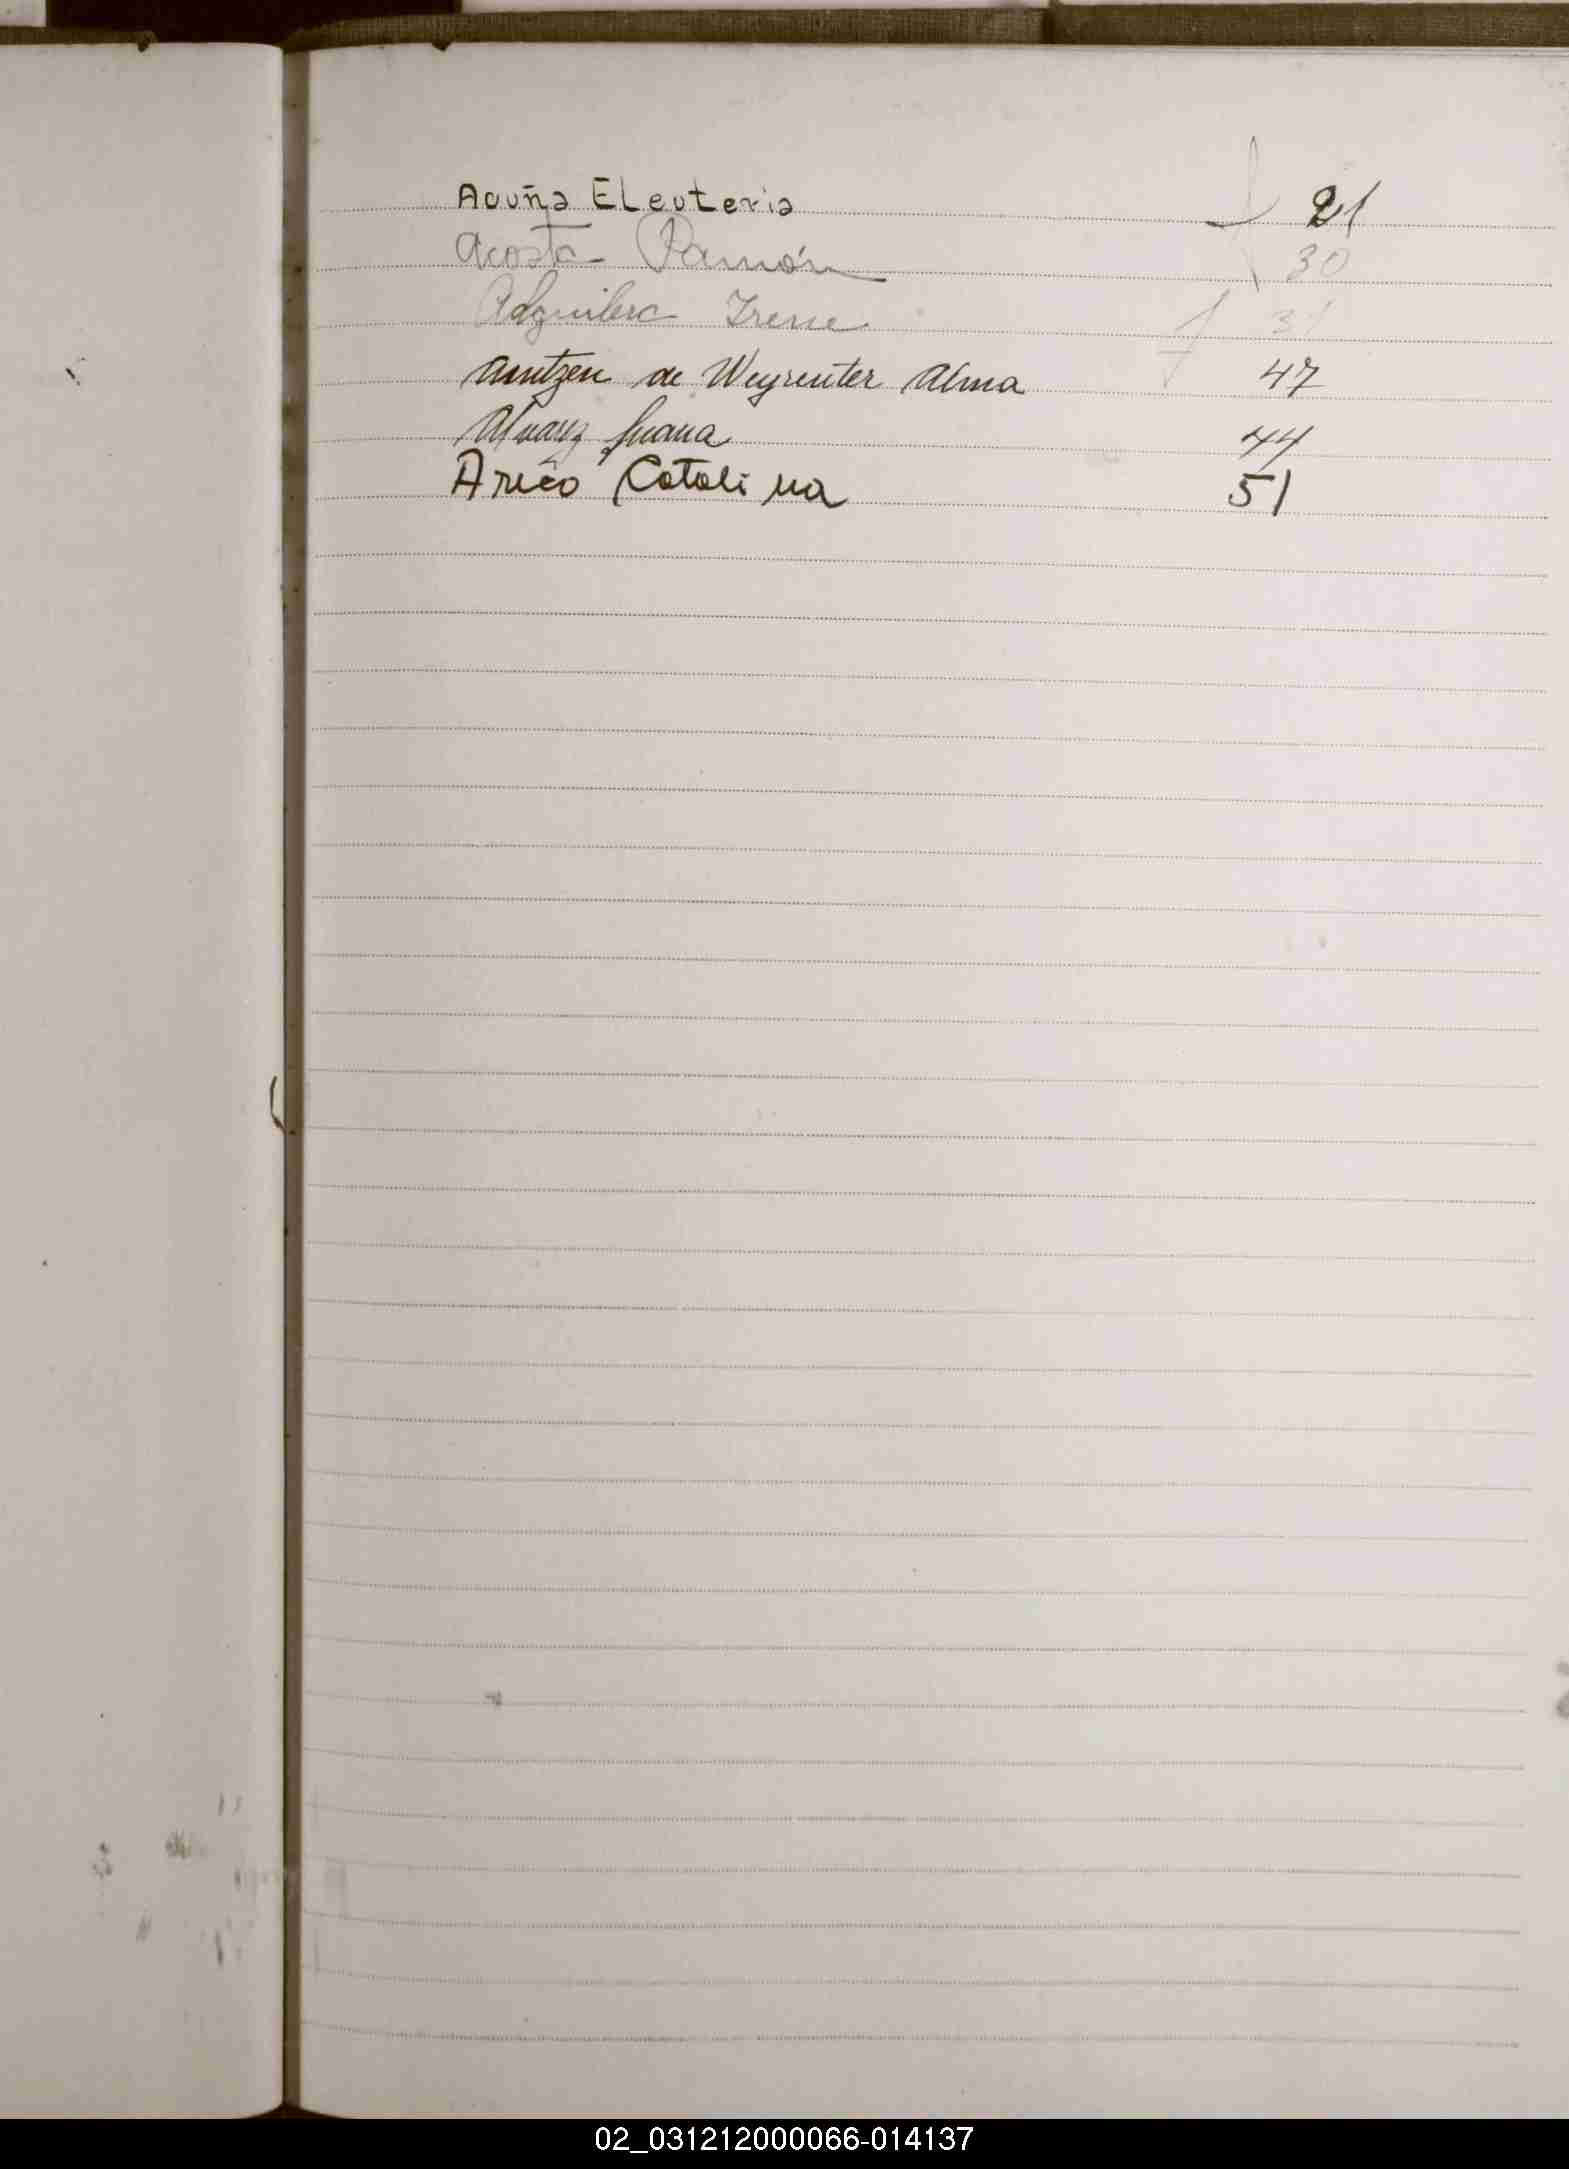 Acuña Eleuteria 21
Acosta Ramón 30
Adguilera Irene 31
de Weyreuter Alma 47
Alvarez Juana 44
Catalina 51
02_031212000066-014137